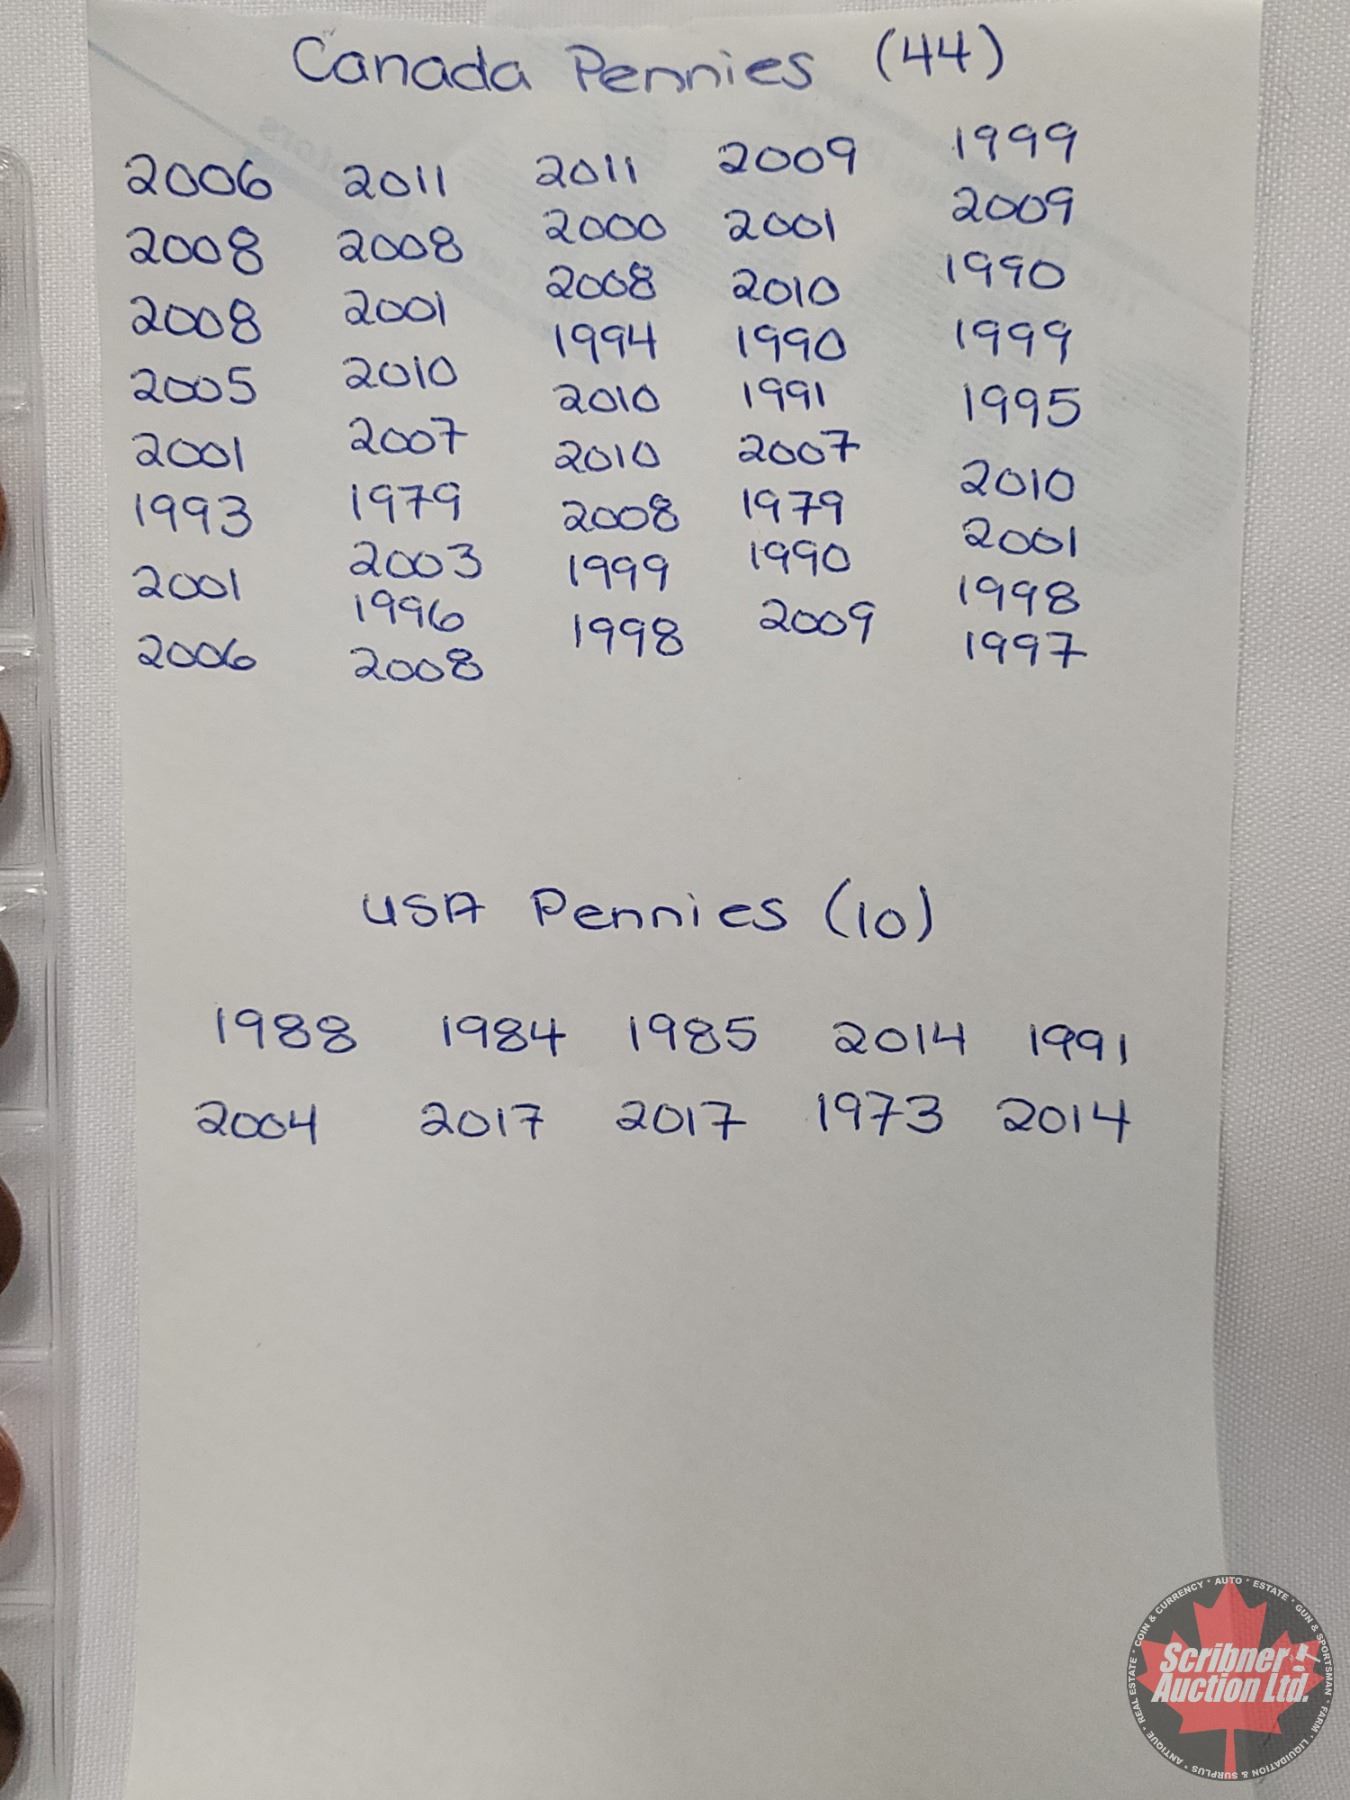 Canada Pennies (44)
2006 2011 2011 2009 1999
2008 2008 2000 2001 2009
2008 2001 2008 2010 1990
2005 2010 1994 1990 1999
2001 2007 2010 1991 1995
1993 1979 2010 2007 2010
2001 2003 2008 1979 2001
2006 1996 1999 1990 1998
2008 1998 2009 1997
USA Pennies (10)
1988 1984 1985 2014 1991
2004 2017 2017 1973 2014
COIN & CURRENCY • AUTO • ESTATE • GUN & SPORTSMAN • FARM • LIQUIDATION & SURPLUS • ANTIQUE • REAL ESTATE •
Scribner
Auction Ltd.